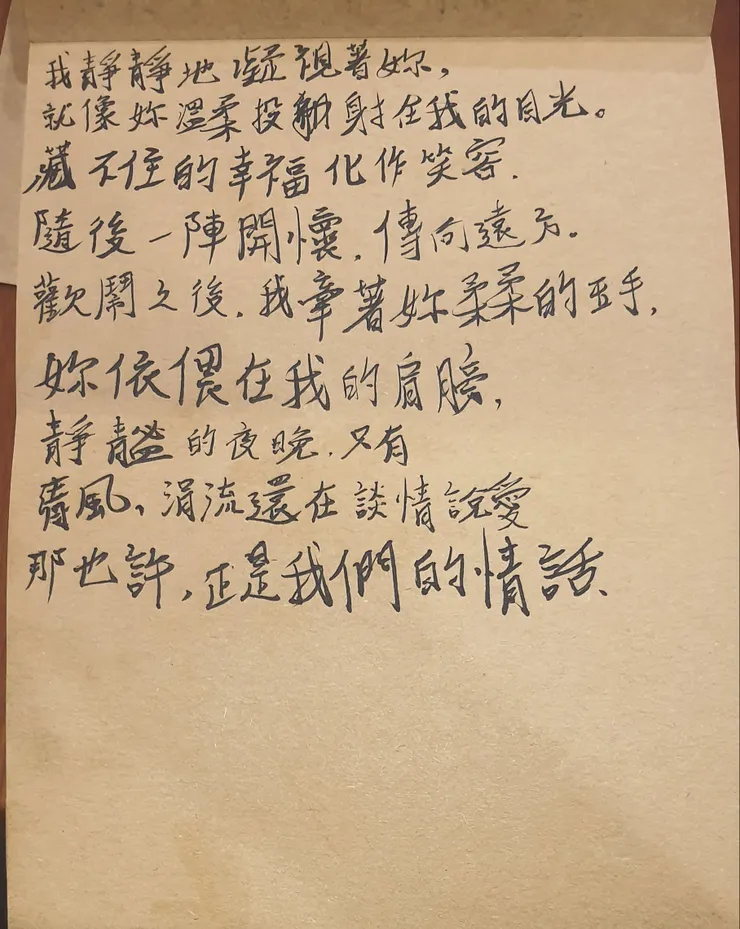 我靜靜地凝視著妳，
就像妳溫柔投射在我的目光。
藏不住的幸福化作笑容.
隨後一陣開懷，傳向遠方。
歡鬧之後，我牽著妳柔柔的玉手，
妳依偎在我的肩膀，
靜謐的夜晚，只有
清風、涓流還在談情說愛
那也許，正是我們的情話、